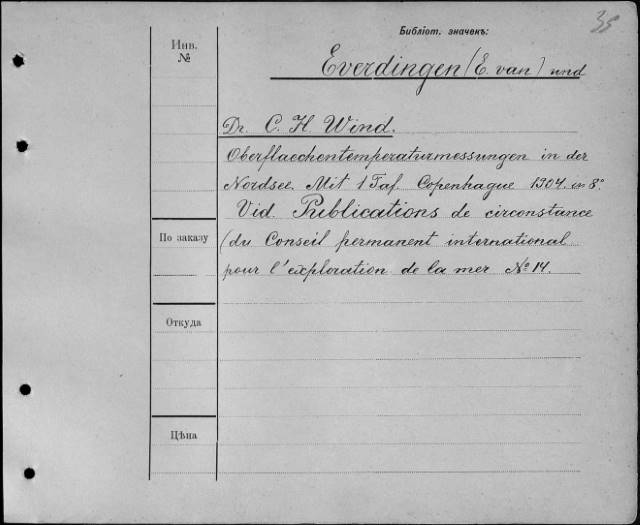 35
Библіот. значекъ:
Инв.
№
Everdingen (E. van) und
Dr. C. H. Wind.
Oberflaechentemperaturmessungen in der
Nordsee. Mit 1 Taf. Copenhague 1904 in 8.°
Vid. Publications de circonstance
(du Conseil permanent international
pour l'exploration de la mer № 14.
По заказу
Откуда
Цѣна